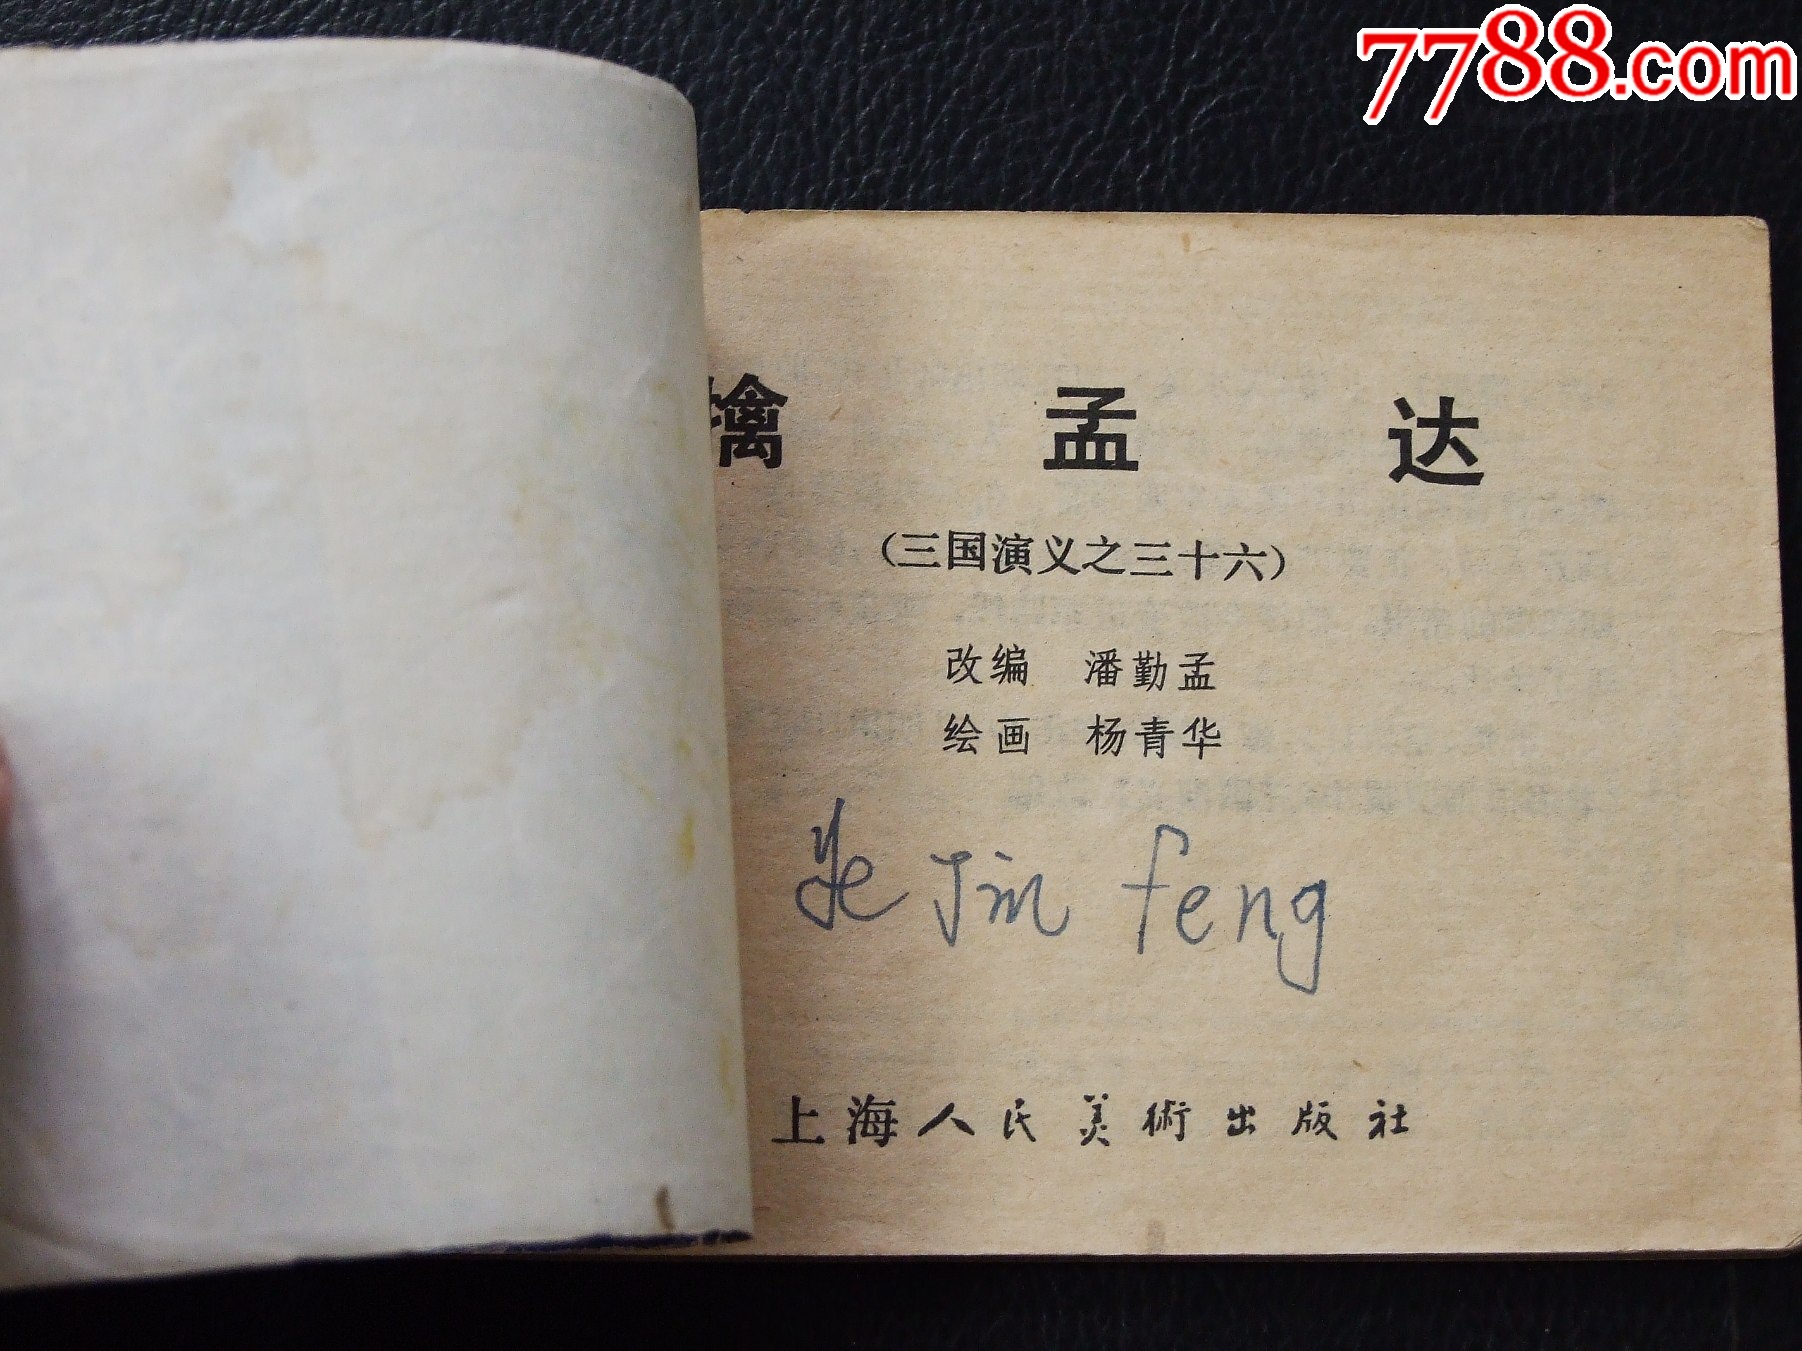 7788.com
擒 孟 达
(三国演义之三十六)
改编 潘勤孟
绘画 杨青华
Ye Jin feng
上海人民美術出版社